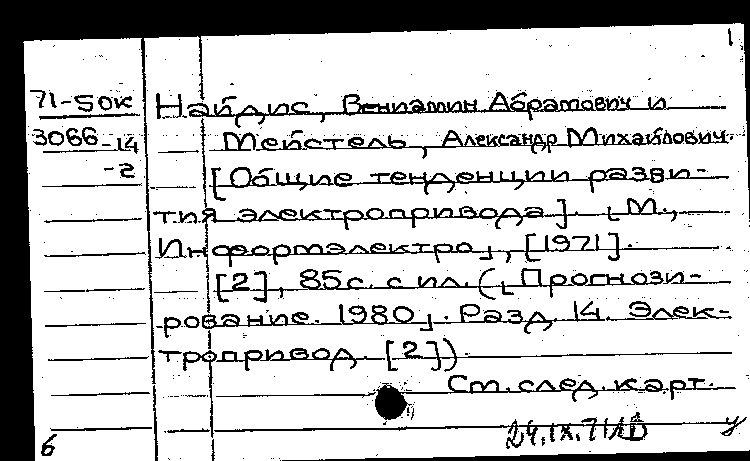 1
71-50к Найдис, Вениамин Абрамович и
3066-14 Мейстель, Александр Михайлович.
-2 [Общие тенденции разви-
тия электропривода]. [М.,
Информэлектро], [1971].
[2], 85с. с ил. ([Прогнози-
рование. 1980]. Разд. 14. Элек-
тропривод. [2]).
См. след. карт.
24.IX.71
6